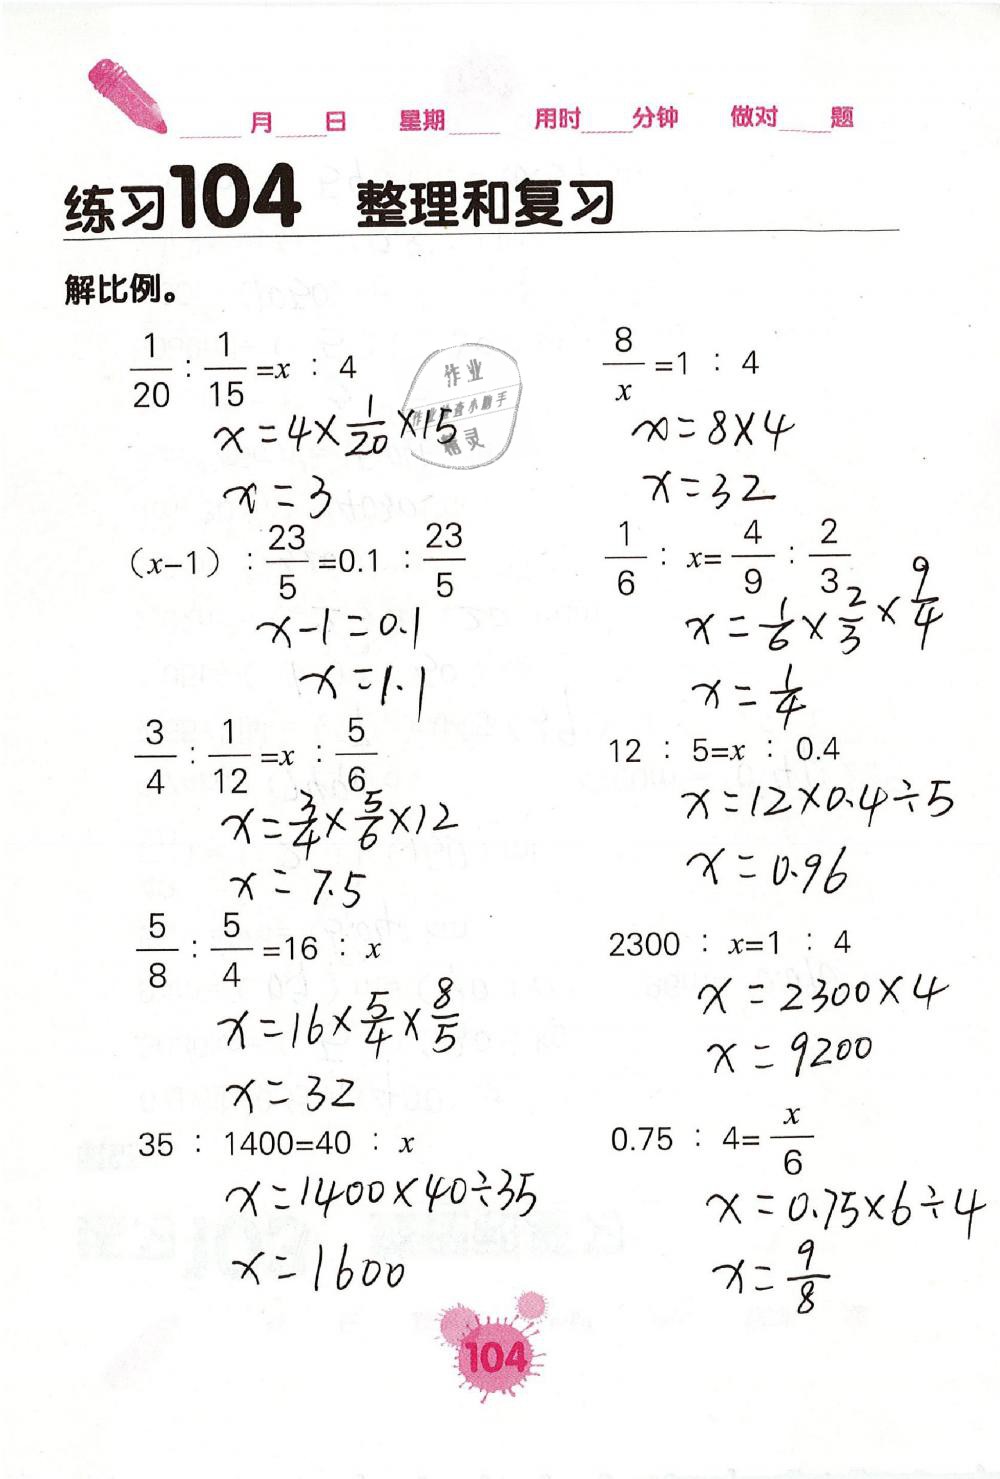 ____月____日 星期____ 用时____分钟 做对____题
练习104 整理和复习
解比例。
1/20 : 1/15 =x : 4
x=4×1/20×15
x=3
8/x =1 : 4
x=8×4
x=32
(x-1) : 23/5 =0.1 : 23/5
x-1=0.1
x=1.1
1/6 : x= 4/9 : 2/3
x=1/6×2/3×9/4
x=1/4
3/4 : 1/12 =x : 5/6
x=3/4×5/6×12
x=7.5
12 : 5=x : 0.4
x=12×0.4÷5
x=0.96
5/8 : 5/4 =16 : x
x=16×5/4×8/5
x=32
2300 : x=1 : 4
x=2300×4
x=9200
35 : 1400=40 : x
x=1400×40÷35
x=1600
0.75 : 4= x/6
x=0.75×6÷4
x=9/8
作业
作业检查小助手
精灵
104